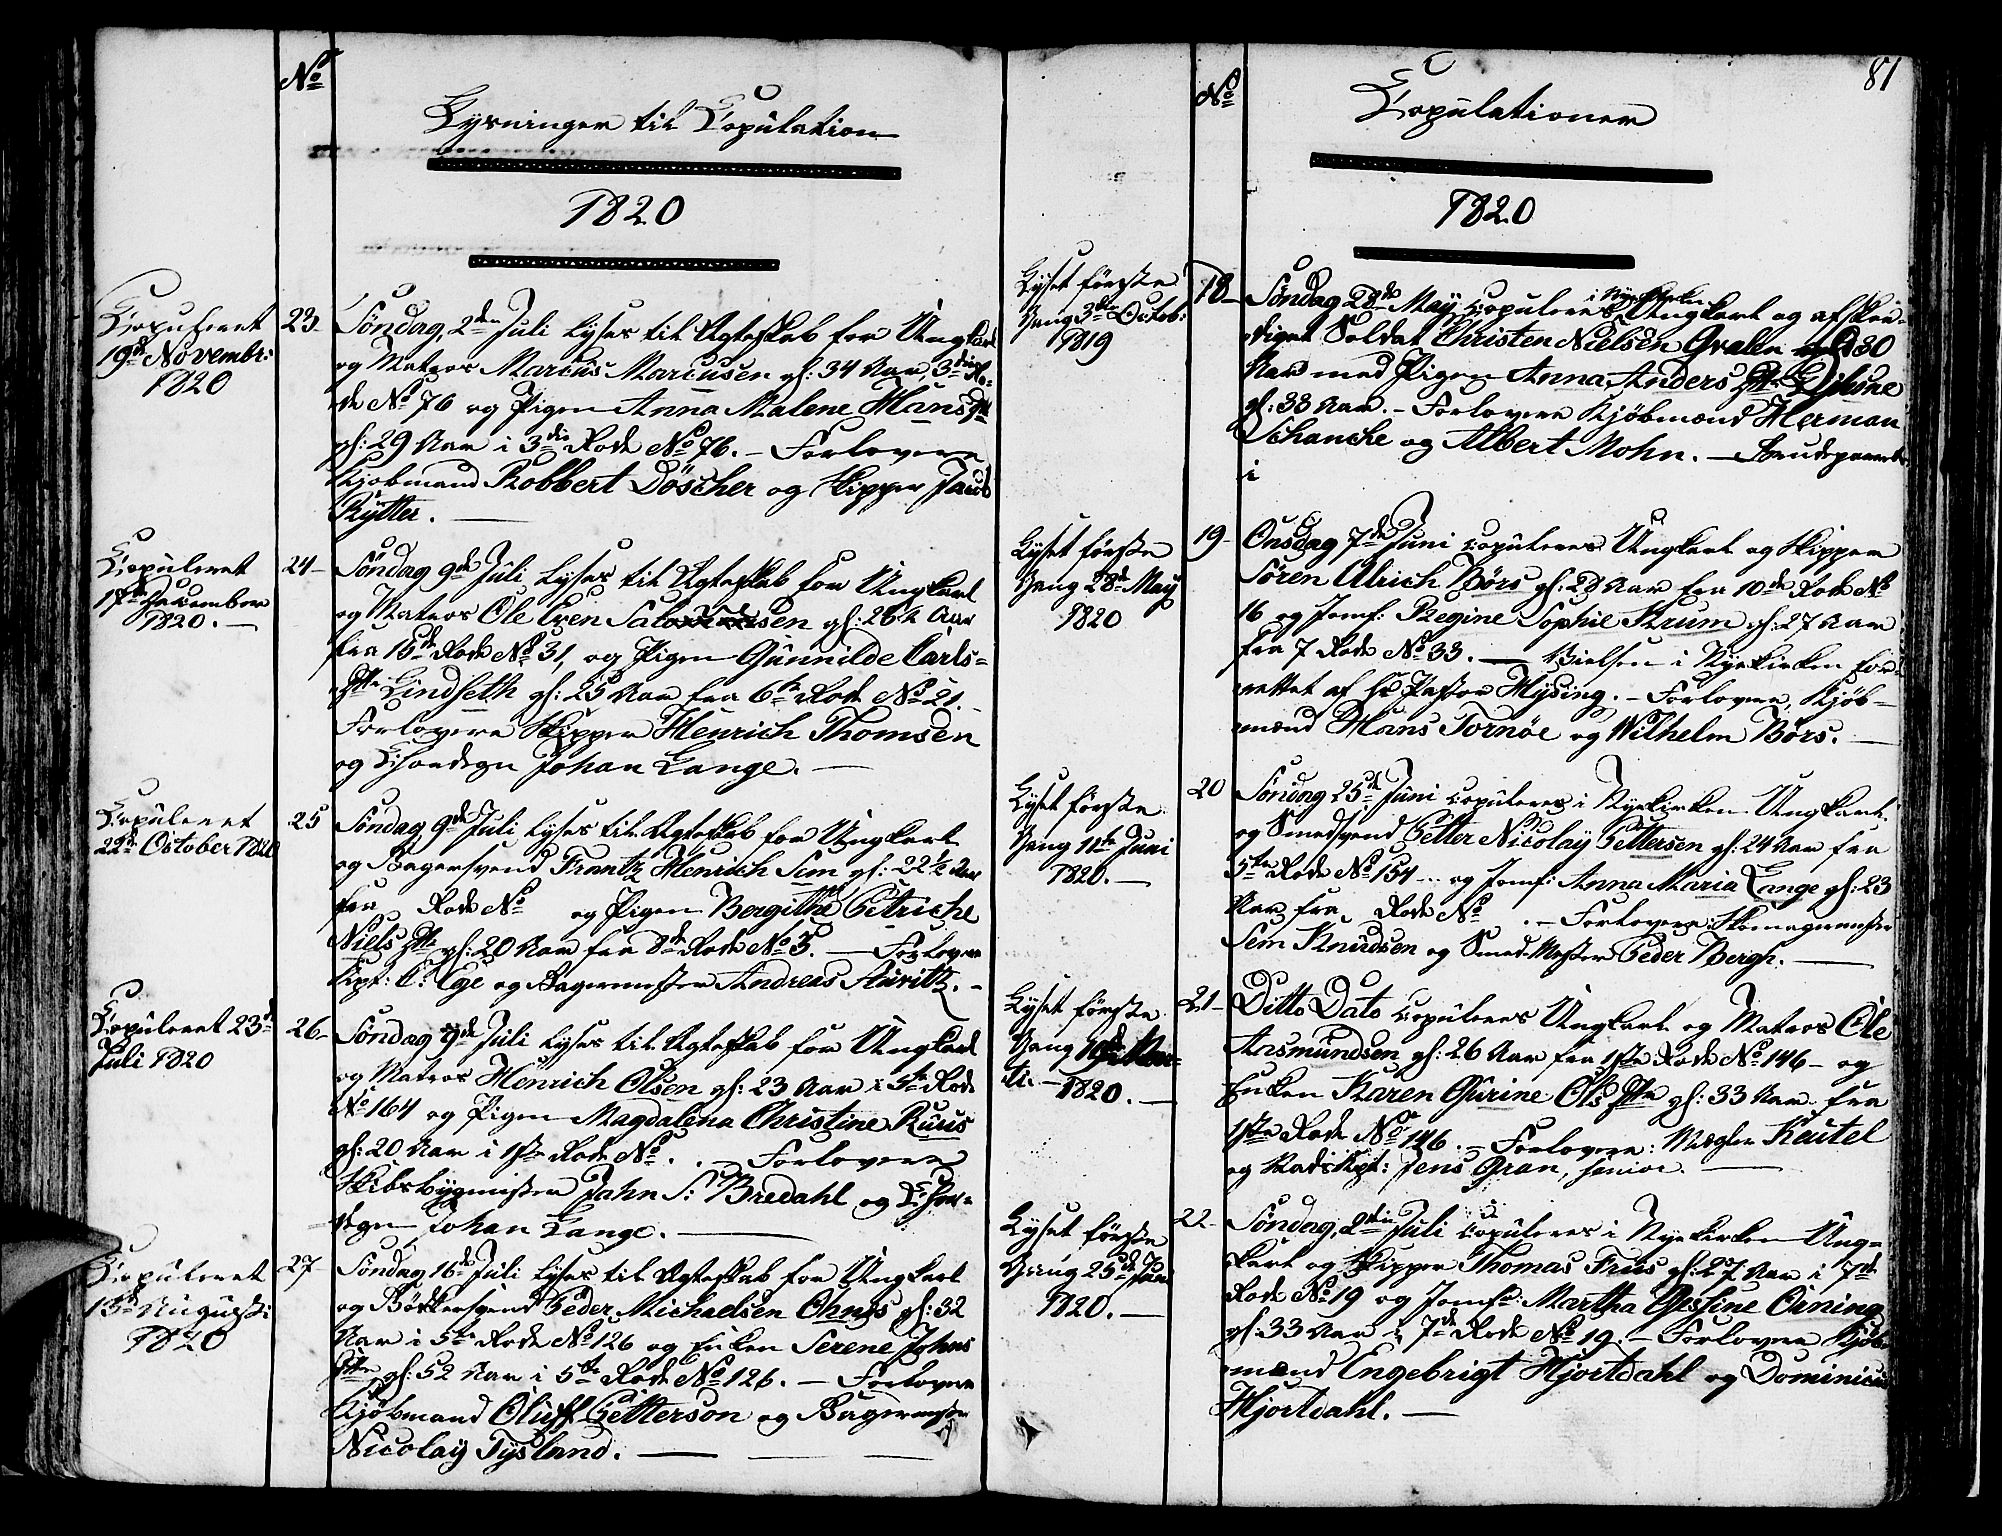 No
Lysninger til Copulation
1820
Copuleret
19de Novembr:
1820
23
Søndag, 2den Juli lyses til Ægteskab for Ungkarl
og Matros Marcus Marcusen gl: 34 Aar, 3die Ro-
de No 76 og Pigen Anna Malene Hansdtr
gl: 29 Aar i 3die Rode No 76. – Forlovere
Kjøbmand Robbert Döscher og Skipper Jacob
Rÿtter.
Copuleret
17de December
1820. –
24 –
Søndag 9de Juli lyses til Ægteskab for Ungkarl
og Matros Ole Iven gl: 26½ Aar
fra 15de Rode No 31, og Pigen Gunnilde Carls-
dtr Lindseth gl: 25 Aar fra 6te Rode No 21. –
Forlovere Skipper Henrich Thomsen
og Johan Lange. –
Copuleret
22de October 1820
25
Søndag 9de Juli lyses til Ægteskab for Ungkarl
og Bagersvend Frantz Henrich Sem gl: 22½ Aar
fra Rode No og Pigen Bergithe Petriche
Niels dtr gl: 20 Aar fra 8de Rode No 3. – Forlovere
Capt: C. Ege og Bagermester Andreas
Copuleret 23de
Juli 1820
26 –
Søndag 9de Juli lyses til Ægteskab for Ungkarl
og Matros Henrich Olsen gl: 23 Aar i 5te Rode
No 164 og Pigen Magdalena Christine Ruus
gl: 20 Aar i 1ste Rode No . – Forlovere
Skibsbygmester Jahn S: Bredahl og
Johan Lange. –
Copuleret
13de August:
1820
27
Søndag 16de Juli lyses til Ægteskab for Ungkarl
og Bødkersvend Peder Michaelsen Ohnis gl: 32
Aar i 5te Rode No 126 og Enken Serene Johns
dtr gl: 52 Aar i 5te Rode No 126. – Forlovere
Kjøbmand Oluff Petterson og Bagermester
Nicolaÿ Tysland. –
81
No
Copulationer
1820
Lyset første
Gang 3die Octob:
1819
18 –
Søndag 28de Maÿ copuleres i Nyekirken Ungkarl og afskee-
diget Soldat Christen Nielsen Gvalen gl: 30
Aar med Pigen Anna Anders dtr
gl: 38 Aar. – Forlovere Kjøbmænd Herman
Schancke og Albert Mohn. –
i
Lyset første
Gang 28de Maÿ
1820
19 –
Onsdag 7de Juni copuleres Ungkarl og Skipper
Søren Ulrich Börs gl: 28 Aar fra 10de Rode No
16 og Jomf: Regine Sophie Krum gl: 27 Aar
fra 7 Rode No 33. – Vielsen i Nyekirken for-
rettet af Hr Pastor Mysing. – Forlovere, Kjøb-
mænd Hans Tornöe og Wilhelm Börs. –
Lyset første
Gang 11te Juni
1820. –
20
Søndag 25de Juni copuleres i Nyekirken Ungkarl
og Smedsvend Petter Nicolaÿ Pettersen gl: 24 Aar fra
5te Rode No 154 – og Jomf: Anna Maria Lange gl: 23
Aar fra Rode No . – Forlovere: Skomagermester
Sem Knudsen og Smed-Mester Peder Bergh. –
Lyset første
Gang
1820. –
21 –
Ditto Dato copuleres Ungkarl og Matros Ole
Aasmundsen gl: 26 Aar fra 1ste Rode No 146 – og
Enken Karen Gurine Ols dtr gl: 33 Aar fra
1ste Rode No 146. – Forlovere: Mægler Keutel
og Jens Gran, senior. –
Lyset første
Gang 25de Juni
1820. –
22 –
Søndag, 2den Juli copuleres i Nyekirken Ung-
karl og Skipper Thomas Friis gl: 27 Aar i 7de
Rode No 19 og Jomf: Martha Gesine Örning
gl: 33 Aar i 7de Rode No 19. – Forlovere Kjøb-
mænd Engebrigt Hjortdahl og Dominicus
Hjortdahl. –